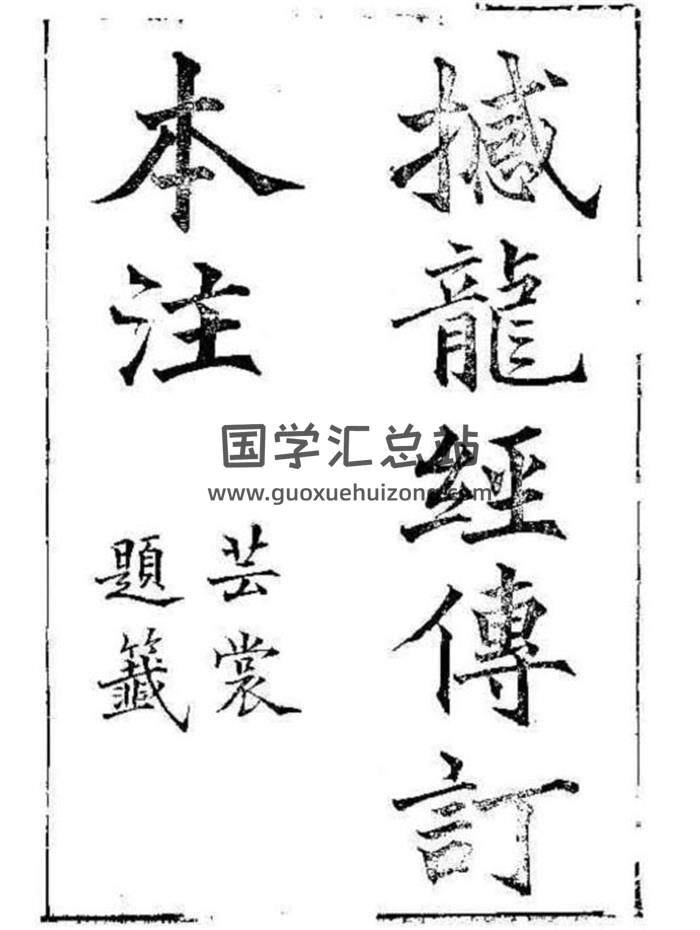 撼龍經傳訂
本注
芸裳
題籤
国学汇总站
www.guoxuehuizong.com